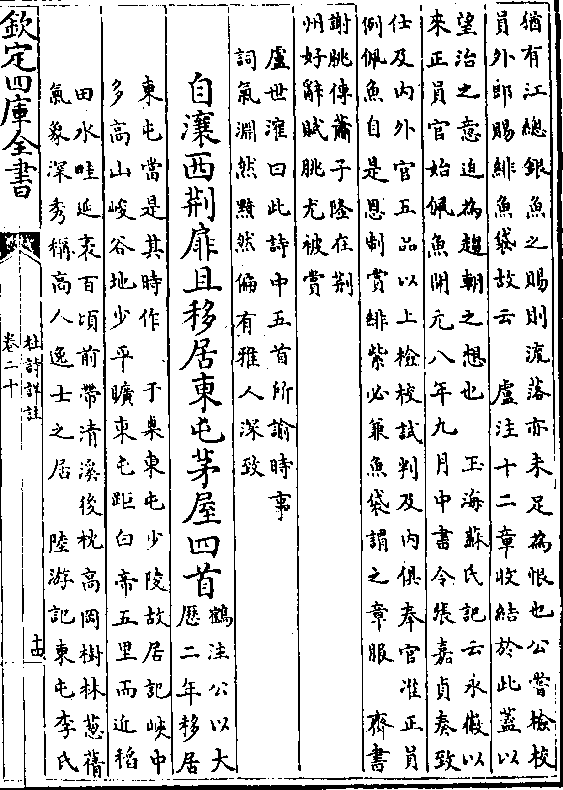 猶有江總銀魚之賜則流落亦未足為恨也公嘗檢校
員外郎賜緋魚袋故云　盧注十二章收結於此蓋以
望治之意迫為趨朝之想也　玉海蘇氏記云永徽以
來正員官始佩魚開元八年九月中書令張嘉貞奏致
仕及内外官五品以上檢校試判及内俱奉官准正員
例佩魚自是恩制賞緋紫必兼魚袋謂之章服　齊書
謝朓傳蕭子隆在荆
州好辭賦朓尤被賞
盧世㴶曰此詩中五首所諭時事
詞氣淵然黯然偏有雅人深致
自瀼西荆扉且移居東屯茅屋四首
鶴注公以大
歴二年移居
東屯當是其時作　于㮚東屯少陵故居記峽中
多高山峻谷地少平曠東屯距白帝五里而近稻
田水畦延袤百頃前帶清溪後枕高岡樹林葱蒨
氣象深秀稱高人逸士之居　陸游記東屯李氏
欽定四庫全書
杜詩詳註
卷二十
十四